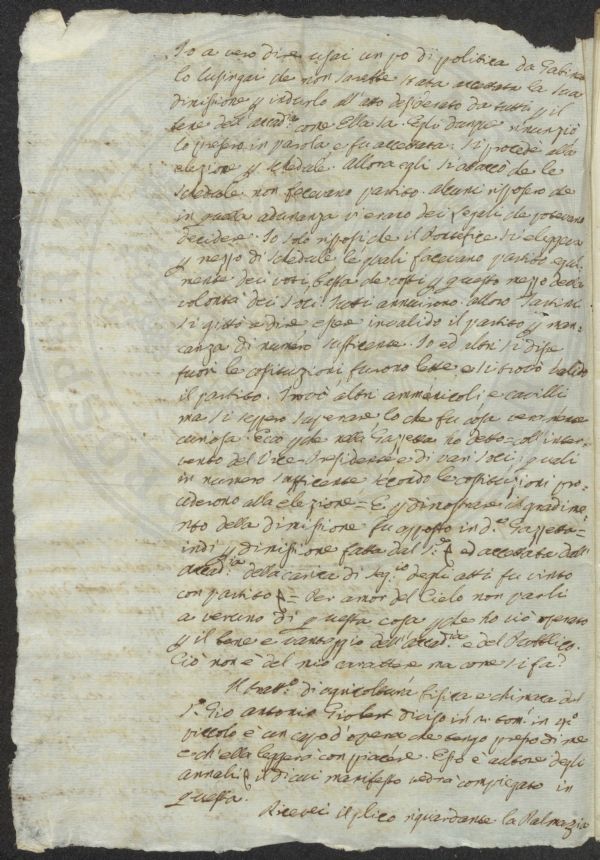 Io a vero dire usai un po di politica da Gabinetto
lo lusingai che non sarebbe stata accettata la sua
dimissione p indurlo all'atto desiderato da tutti p il
bene dell'Accad.ᵃ come Ella sa. Egli dunque rinunziò
lo prefero in parola e fu accettata. Si procedè alla
elezione p schedule. Allora egli si attaccò che le
schedule non facevano partito. Alcuni risposero che
in quella adunanza v'erano dei Legali che potevano
decidere. Io solo risposi che il Pontefice si eleggeva
p mezzo di schedule le quali facevano partito
dei voti, basta che costi p questo mezzo della
volontà dei Soci. Tutti annuirono. Allora
si gittò a dire essere invalido il partito p man-
canza di numero sufficente. Io ed altri si disse
fuori le costituzioni, furono lette e si trovò valido
il partito. Trovò altri ammenicoli e cavilli
ma si seppero superare, lo che fu cosa veramente
curiosa. Ecco p che nella Gazzetta ho detto = coll'inter-
vento del Vice-Presidente, e di varj Soci, i quali
in numero sufficente secondo le costituzioni pro-
cederono alla elezione = E p dimostrare il gradime-
nto della dimissione fu apposto in d.ᵃ Gazzetta =
indi p dimissione fatta dal S.ʳ ed accettata dall'
Accad.ᵃ della carica di Seg.ʳⁱᵒ degli atti fu vinto
con partito = Per amor del Cielo non parli
a veruno di questa cosa p che ho ciò operato
p il bene e vantaggio dell'Accad.ᵃ e del Pubblico.
Ciò non è del mio carattere ma come si fa?
Il tratt.º di agricoltura fisica e chimica del
S.ʳ Gio Antonio Giobert diviso in tomi in
piccolo è un capo d'opera che tengo presso di me
e ch'ella leggerà con piacere. Esso è autore degli
annali, il di cui manifesto vedrà compiegato in
questa.
Ricevei il plico riguardante la